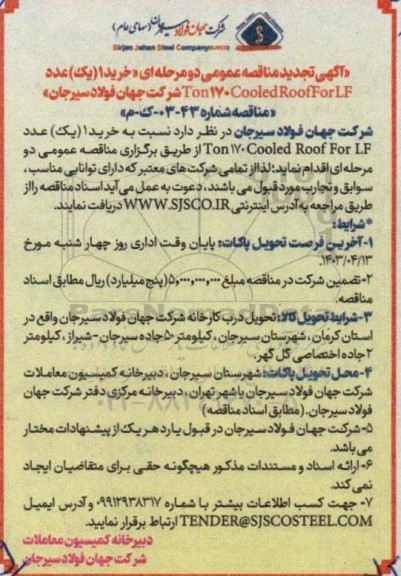 شرکت جهان فولاد سیرجان (سهامی عام)
Sirjan Jahan Steel Company
«آگهی تجدید مناقصه عمومی دو مرحله ای « خرید ۱ (یک) عدد
Ton ۱۷۰ Cooled Roof For LF شرکت جهان فولاد سیرجان»
« مناقصه شماره ۴۳-۰۳-ک-م»
شرکت جهان فولاد سیرجان در نظر دارد نسبت به خرید ۱ (یک) عدد
Ton ۱۷۰ Cooled Roof For LF از طریق برگزاری مناقصه عمومی دو
مرحله ای اقدام نماید؛ لذا از تمامی شرکت های معتبر که دارای توانایی مناسب ،
سوابق و تجارب مورد قبول می باشند ، دعوت به عمل می آید اسناد مناقصه را از
طریق مراجعه به آدرس اینترنتی WWW.SJSCO.IR دریافت نمایند.
*شرایط:
۱-آخرین فرصت تحویل پاکات: پایان وقت اداری روز چهار شنبه مورخ
۱۴۰۳/۰۴/۱۳.
۲-تضمین شرکت در مناقصه مبلغ ۵,۰۰۰,۰۰۰,۰۰۰(پنج میلیارد) ریال مطابق اسناد
مناقصه.
۳-شرایط تحویل کالا: تحویل درب کارخانه شرکت جهان فولاد سیرجان واقع در
استان کرمان ، شهرستان سیرجان ، کیلومتر ۵۰ جاده سیرجان -شیراز ، کیلومتر
۲ جاده اختصاصی گل گهر.
۴-محل تحویل پاکات: شهرستان سیرجان ، دبیرخانه کمیسیون معاملات
شرکت جهان فولاد سیرجان یا شهر تهران ، دبیرخانه مرکزی دفتر شرکت جهان
فولاد سیرجان. (مطابق اسناد مناقصه)
۵-شرکت جهان فولاد سیرجان در قبول یا رد هر یک از پیشنهادات مختار
می باشد.
۶- ارائه اسناد و مستندات مذکور هیچگونه حقی برای متقاضیان ایجاد
نمی کند.
۷- جهت کسب اطلاعات بیشتر با شماره ۰۹۹۱۲۹۳۸۳۱۷ و آدرس ایمیل
TENDER@SJSCOSTEEL.COM ارتباط برقرار نمایید.
دبیرخانه کمیسیون معاملات
شرکت جهان فولاد سیرجان